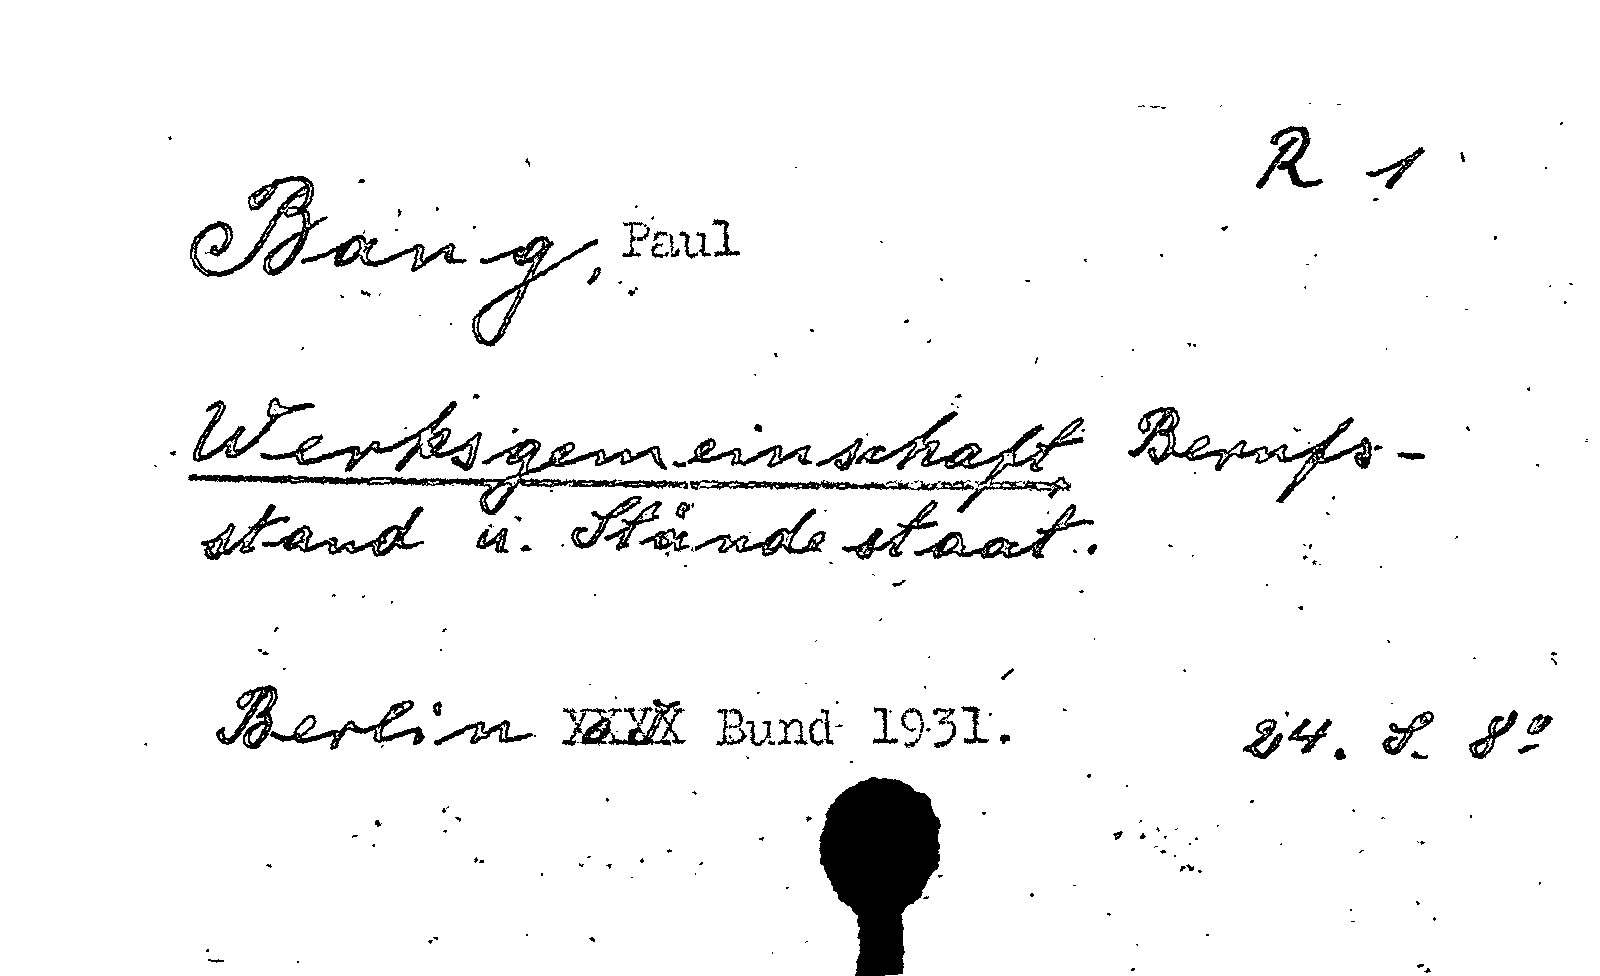 R 1
Bang, Paul
Werksgemeinschaft Berufs-
stand u. Ständestaat.
Berlin Bund 1931. 24. S. 8º